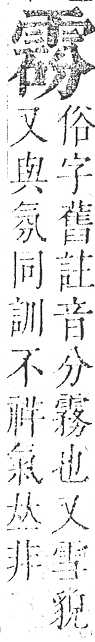 俗字舊註音分霧也又雪貌
又與氛同訓不祥氣𠀤非